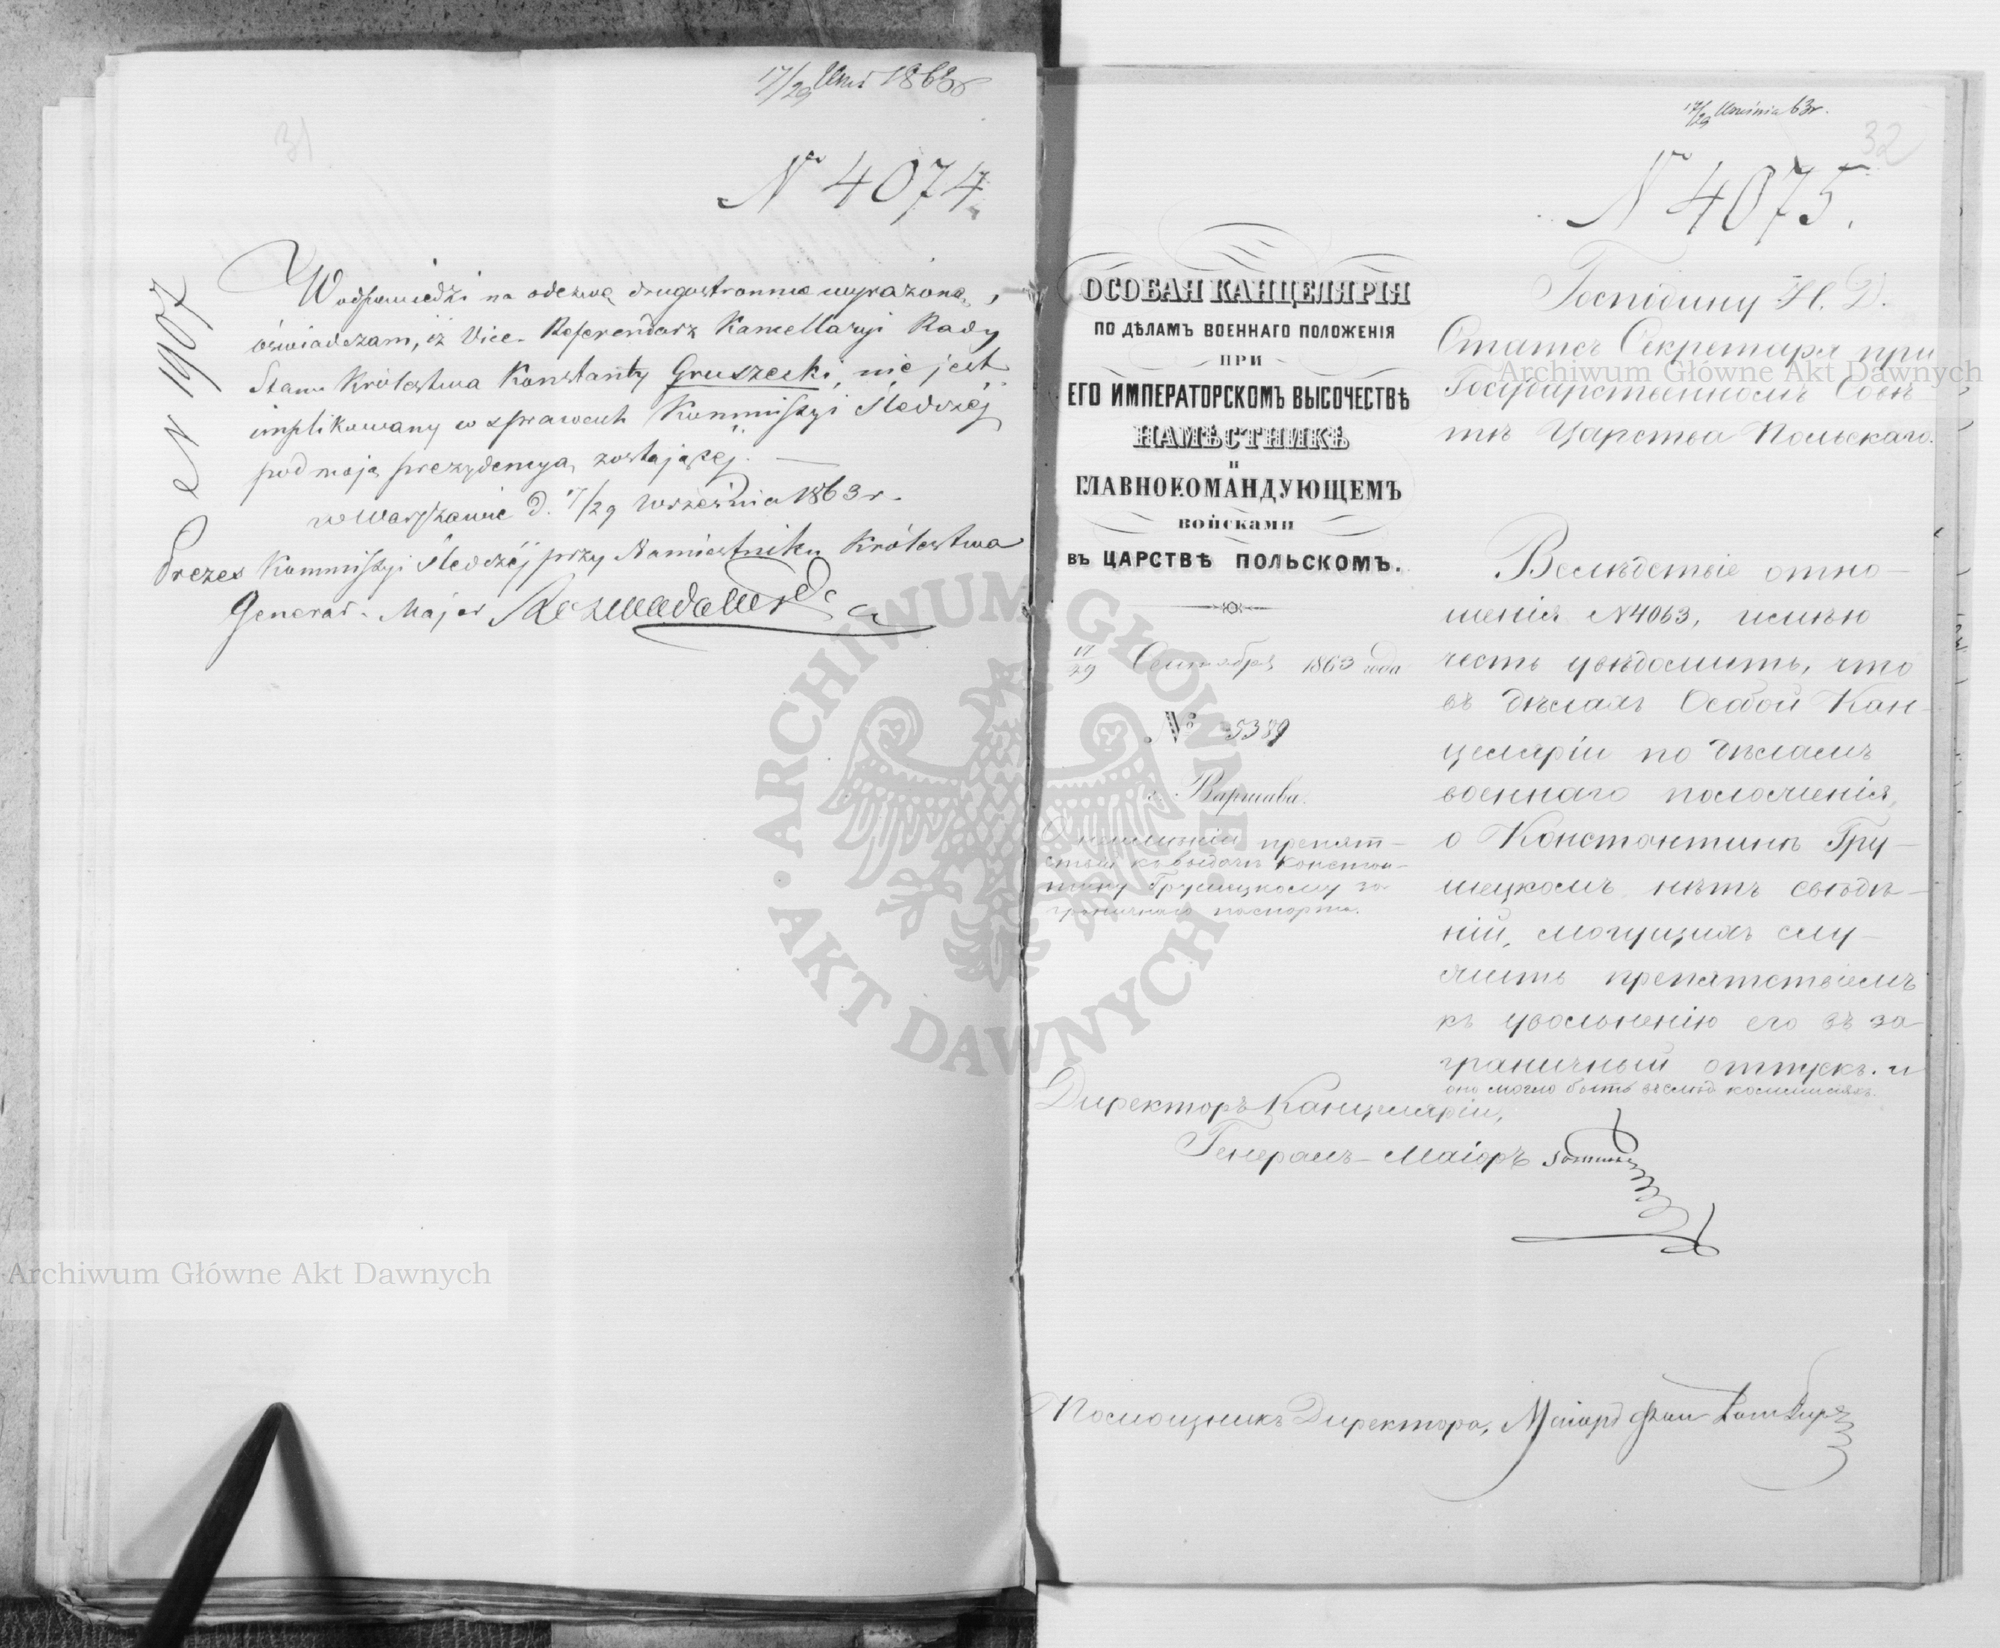 31
17/29 Wrześ 1863 r
N 4074
N 1907
W odpowiedzi na odezwę drugostronnie wyrażoną,
oświadczam, iż Vice-Referendarz Kancellaryi Rady
Stanu Królestwa Konstanty Gruszecki, nie jest
implikowany w sprawach Kommissyi Śledczéj
pod moją prezydencyą zostającej.
w Warszawie d. 17/29 Września 1863 r.
Prezes Kommissyi Śledczéj przy Namiestniku Królestwa
Generał-Major
17/29 Września 63 r.
32
N 4075.
ОСОБАЯ КАНЦЕЛЯРІЯ
ПО ДѢЛАМЪ ВОЕННАГО ПОЛОЖЕНІЯ
ПРИ
ЕГО ИМПЕРАТОРСКОМЪ ВЫСОЧЕСТВѢ
НАМѢСТНИКѢ
И
ГЛАВНОКОМАНДУЮЩЕМЪ
ВОЙСКАМИ
ВЪ ЦАРСТВѢ ПОЛЬСКОМЪ.
17/29 Сентября 1863 года
№ 5389
г. Варшава.
О неимѣніи препят-
ствія къ выдачѣ Констан-
тину Грушецкому за-
граничнаго паспорта.
Господину И. Д.
Статсъ Секретаря при
Государственномъ Совѣ-
тѣ Царства Польскаго.
Вслѣдствіе отно-
шенія N 4063, имѣю
честь увѣдомить, что
въ дѣлахъ Особой Кан-
целяріи по дѣламъ
военнаго положенія,
о Константинѣ Гру-
шецкомъ нѣтъ свѣдѣ-
ній, могущихъ слу-
жить препятствіемъ
къ увольненію его въ за-
граничный отпускъ. и
оно могло быть
Директоръ Канцеляріи,
Генералъ-Маіоръ
Помощникъ Директора, Маіоръ фон
Archiwum Główne Akt Dawnych
Archiwum Główne Akt Dawnych
ARCHIWUM GŁÓWNE AKT DAWNYCH